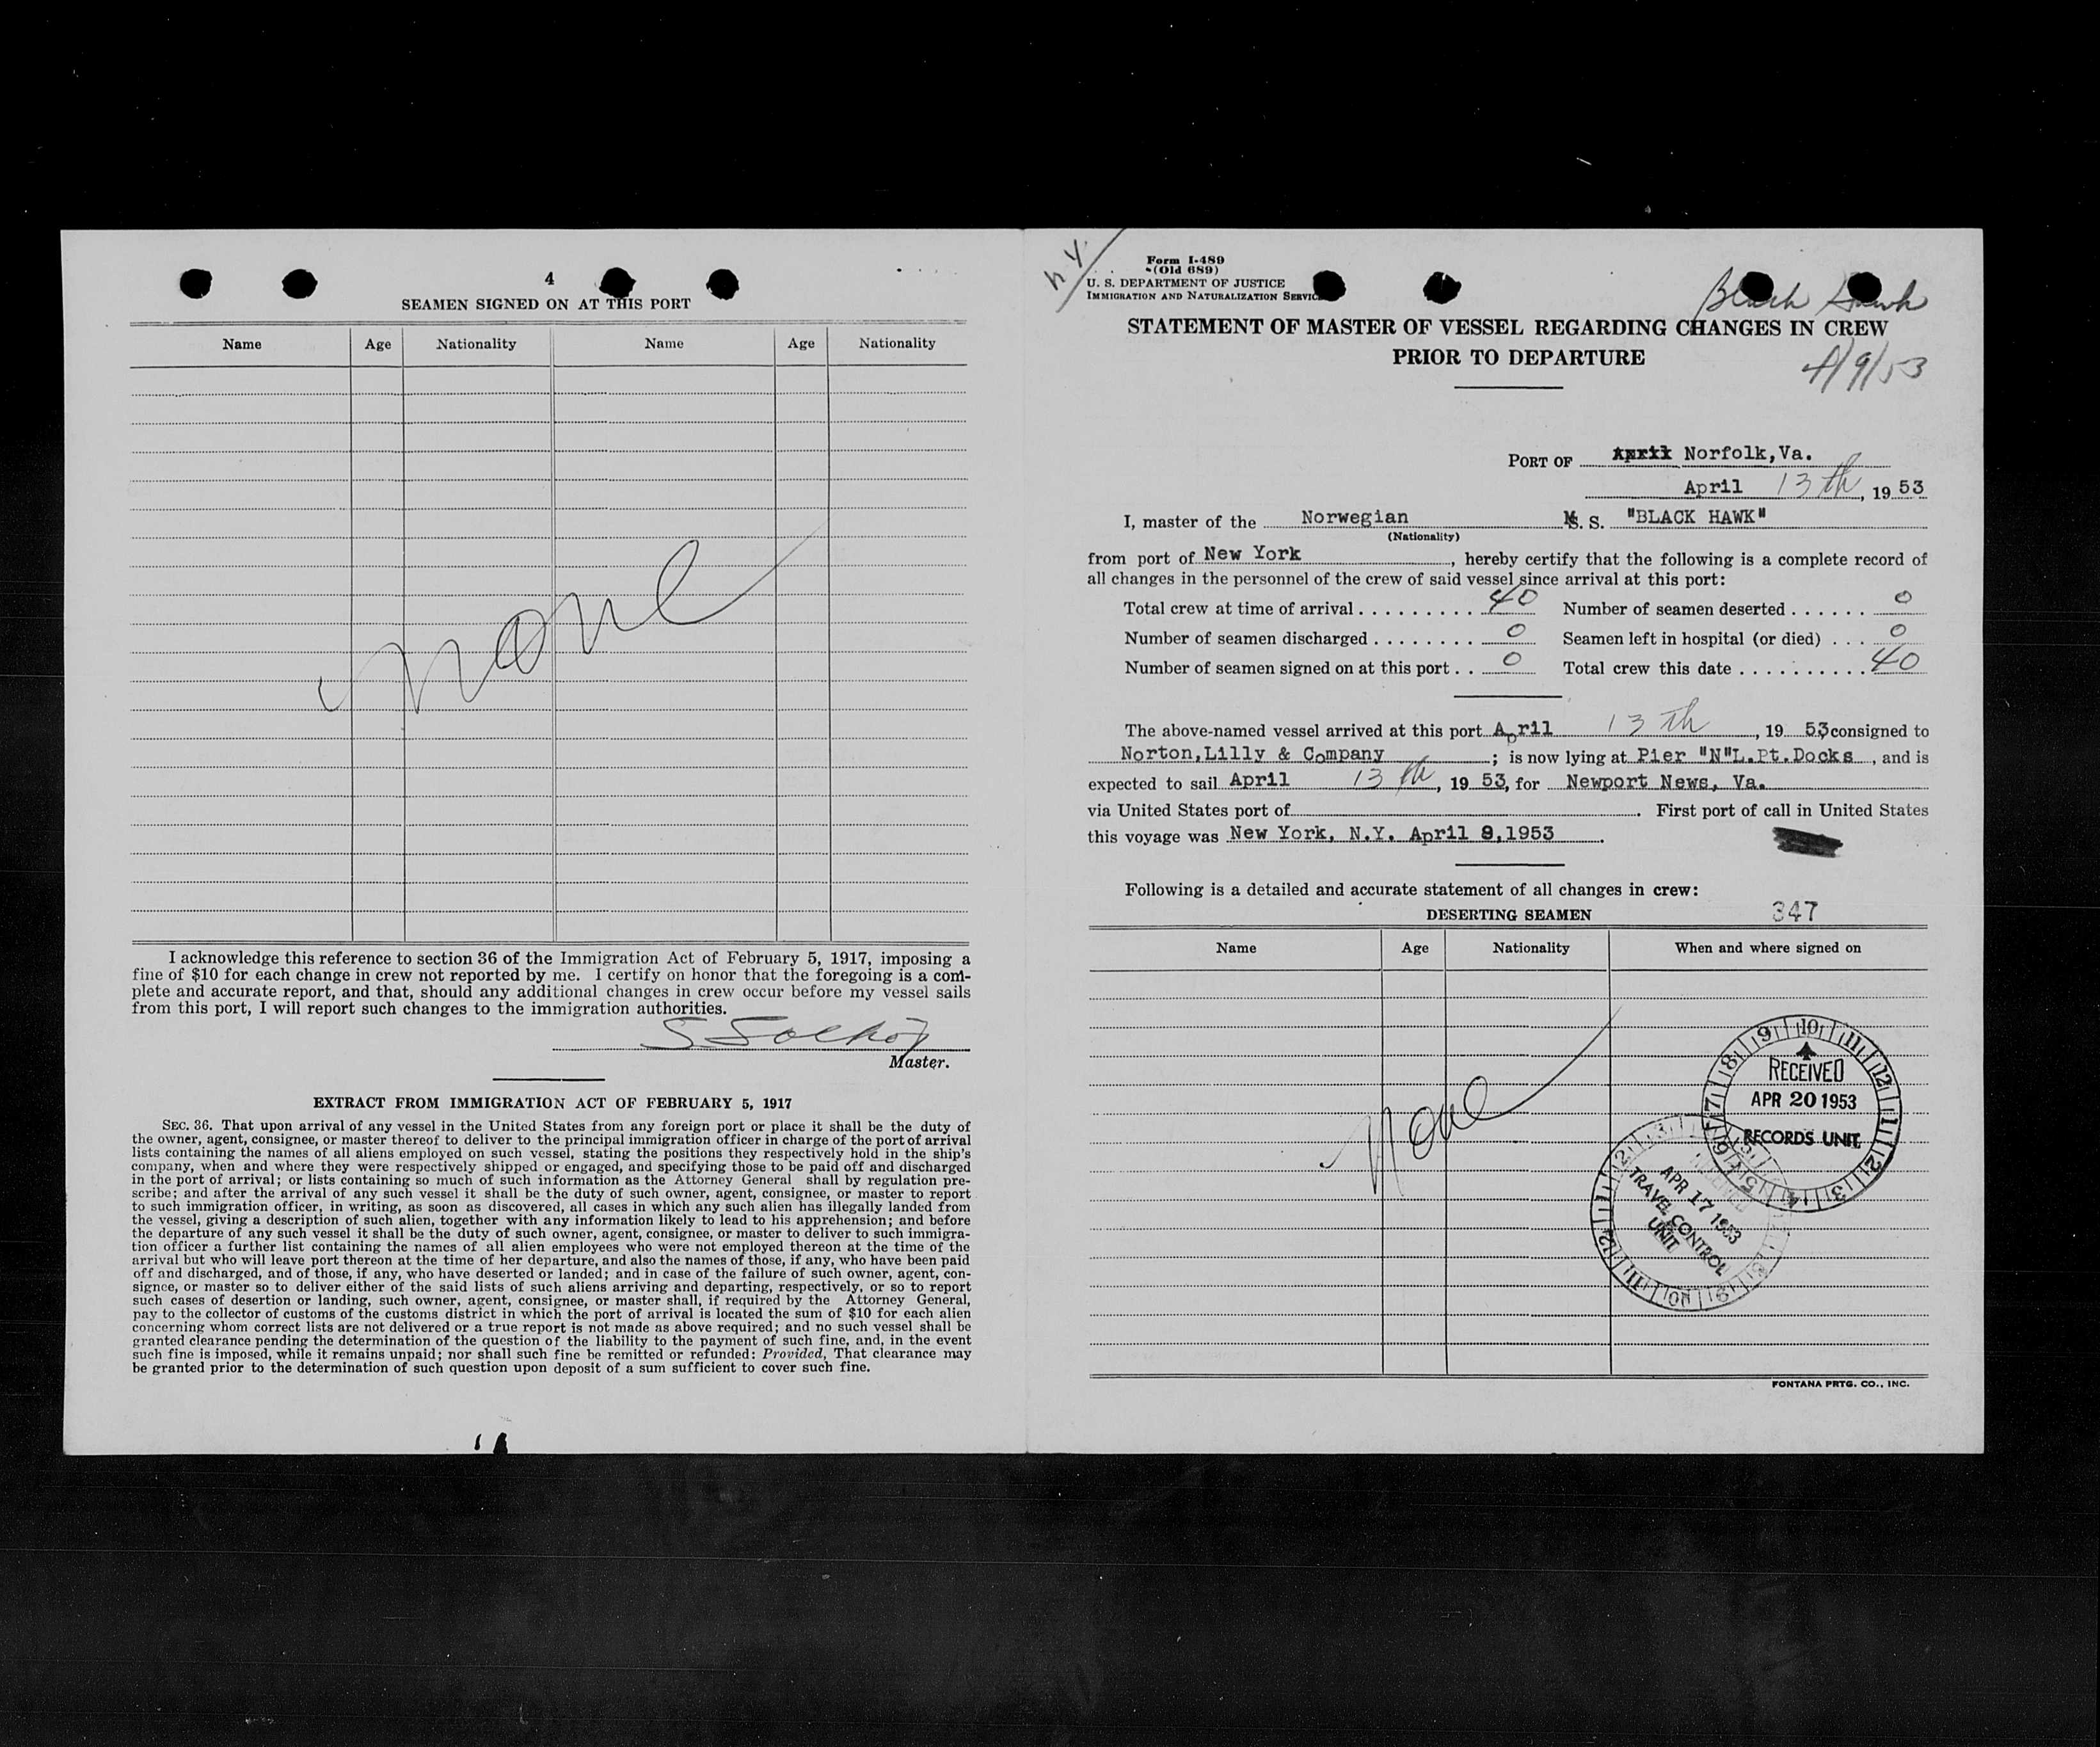 4
SEAMEN SIGNED ON AT THIS PORT
Name Age Nationality Name Age Nationality
None
I acknowledge this reference to section 36 of the Immigration Act of February 5, 1917, imposing a
fine of $10 for each change in crew not reported by me. I certify on honor that the foregoing is a com-
plete and accurate report, and that, should any additional changes in crew occur before my vessel sails
from this port, I will report such changes to the immigration authorities.
Master.
EXTRACT FROM IMMIGRATION ACT OF FEBRUARY 5, 1917
SEC. 36. That upon arrival of any vessel in the United States from any foreign port or place it shall be the duty of
the owner, agent, consignee, or master thereof to deliver to the principal immigration officer in charge of the port of arrival
lists containing the names of all aliens employed on such vessel, stating the positions they respectively hold in the ship's
company, when and where they were respectively shipped or engaged, and specifying those to be paid off and discharged
in the port of arrival; or lists containing so much of such information as the Attorney General shall by regulation pre-
scribe; and after the arrival of any such vessel it shall be the duty of such owner, agent, consignee, or master to report
to such immigration officer, in writing, as soon as discovered, all cases in which any such alien has illegally landed from
the vessel, giving a description of such alien, together with any information likely to lead to his apprehension; and before
the departure of any such vessel it shall be the duty of such owner, agent, consignee, or master to deliver to such immigra-
tion officer a further list containing the names of all alien employees who were not employed thereon at the time of the
arrival but who will leave port thereon at the time of her departure, and also the names of those, if any, who have been paid
off and discharged, and of those, if any, who have deserted or landed; and in case of the failure of such owner, agent, con-
signee, or master so to deliver either of the said lists of such aliens arriving and departing, respectively, or so to report
such cases of desertion or landing, such owner, agent, consignee, or master shall, if required by the Attorney General,
pay to the collector of customs of the customs district in which the port of arrival is located the sum of $10 for each alien
concerning whom correct lists are not delivered or a true report is not made as above required; and no such vessel shall be
granted clearance pending the determination of the question of the liability to the payment of such fine, and, in the event
such fine is imposed, while it remains unpaid; nor shall such fine be remitted or refunded: Provided, That clearance may
be granted prior to the determination of such question upon deposit of a sum sufficient to cover such fine.
Form I-489
(Old 689)
U. S. DEPARTMENT OF JUSTICE
IMMIGRATION AND NATURALIZATION SERVICE
Black Hawk
STATEMENT OF MASTER OF VESSEL REGARDING CHANGES IN CREW
PRIOR TO DEPARTURE
4/9/53
PORT OF April Norfolk,Va.
April 13th, 19 53
I, master of the Norwegian M. S. "BLACK HAWK"
(Nationality)
from port of New York, hereby certify that the following is a complete record of
all changes in the personnel of the crew of said vessel since arrival at this port:
Total crew at time of arrival 40 Number of seamen deserted 0
Number of seamen discharged 0 Seamen left in hospital (or died) 0
Number of seamen signed on at this port 0 Total crew this date 40
The above-named vessel arrived at this port April 13th, 19 53 consigned to
Norton,Lilly & Company; is now lying at Pier "N"L.Pt.Docks, and is
expected to sail April 13th, 19 53, for Newport News, Va.
via United States port of . First port of call in United States
this voyage was New York, N.Y. April 9,1953.
Following is a detailed and accurate statement of all changes in crew:
DESERTING SEAMEN
347
Name Age Nationality When and where signed on
None
RECEIVED
APR 20 1953
RECORDS UNIT
APR 17 1953
TRAVEL CONTROL
UNIT
FONTANA PRTG. CO., INC.